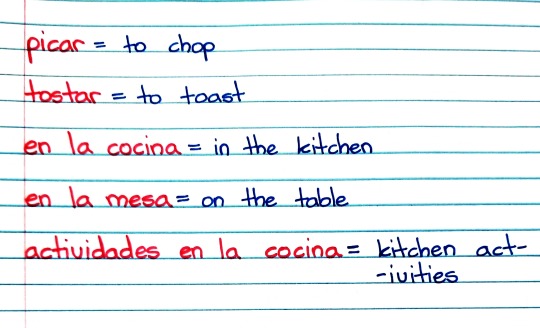 picar = to chop
tostar = to toast
en la cocina = in the kitchen
en la mesa = on the table
actividades en la cocina = kitchen act-
-ivities